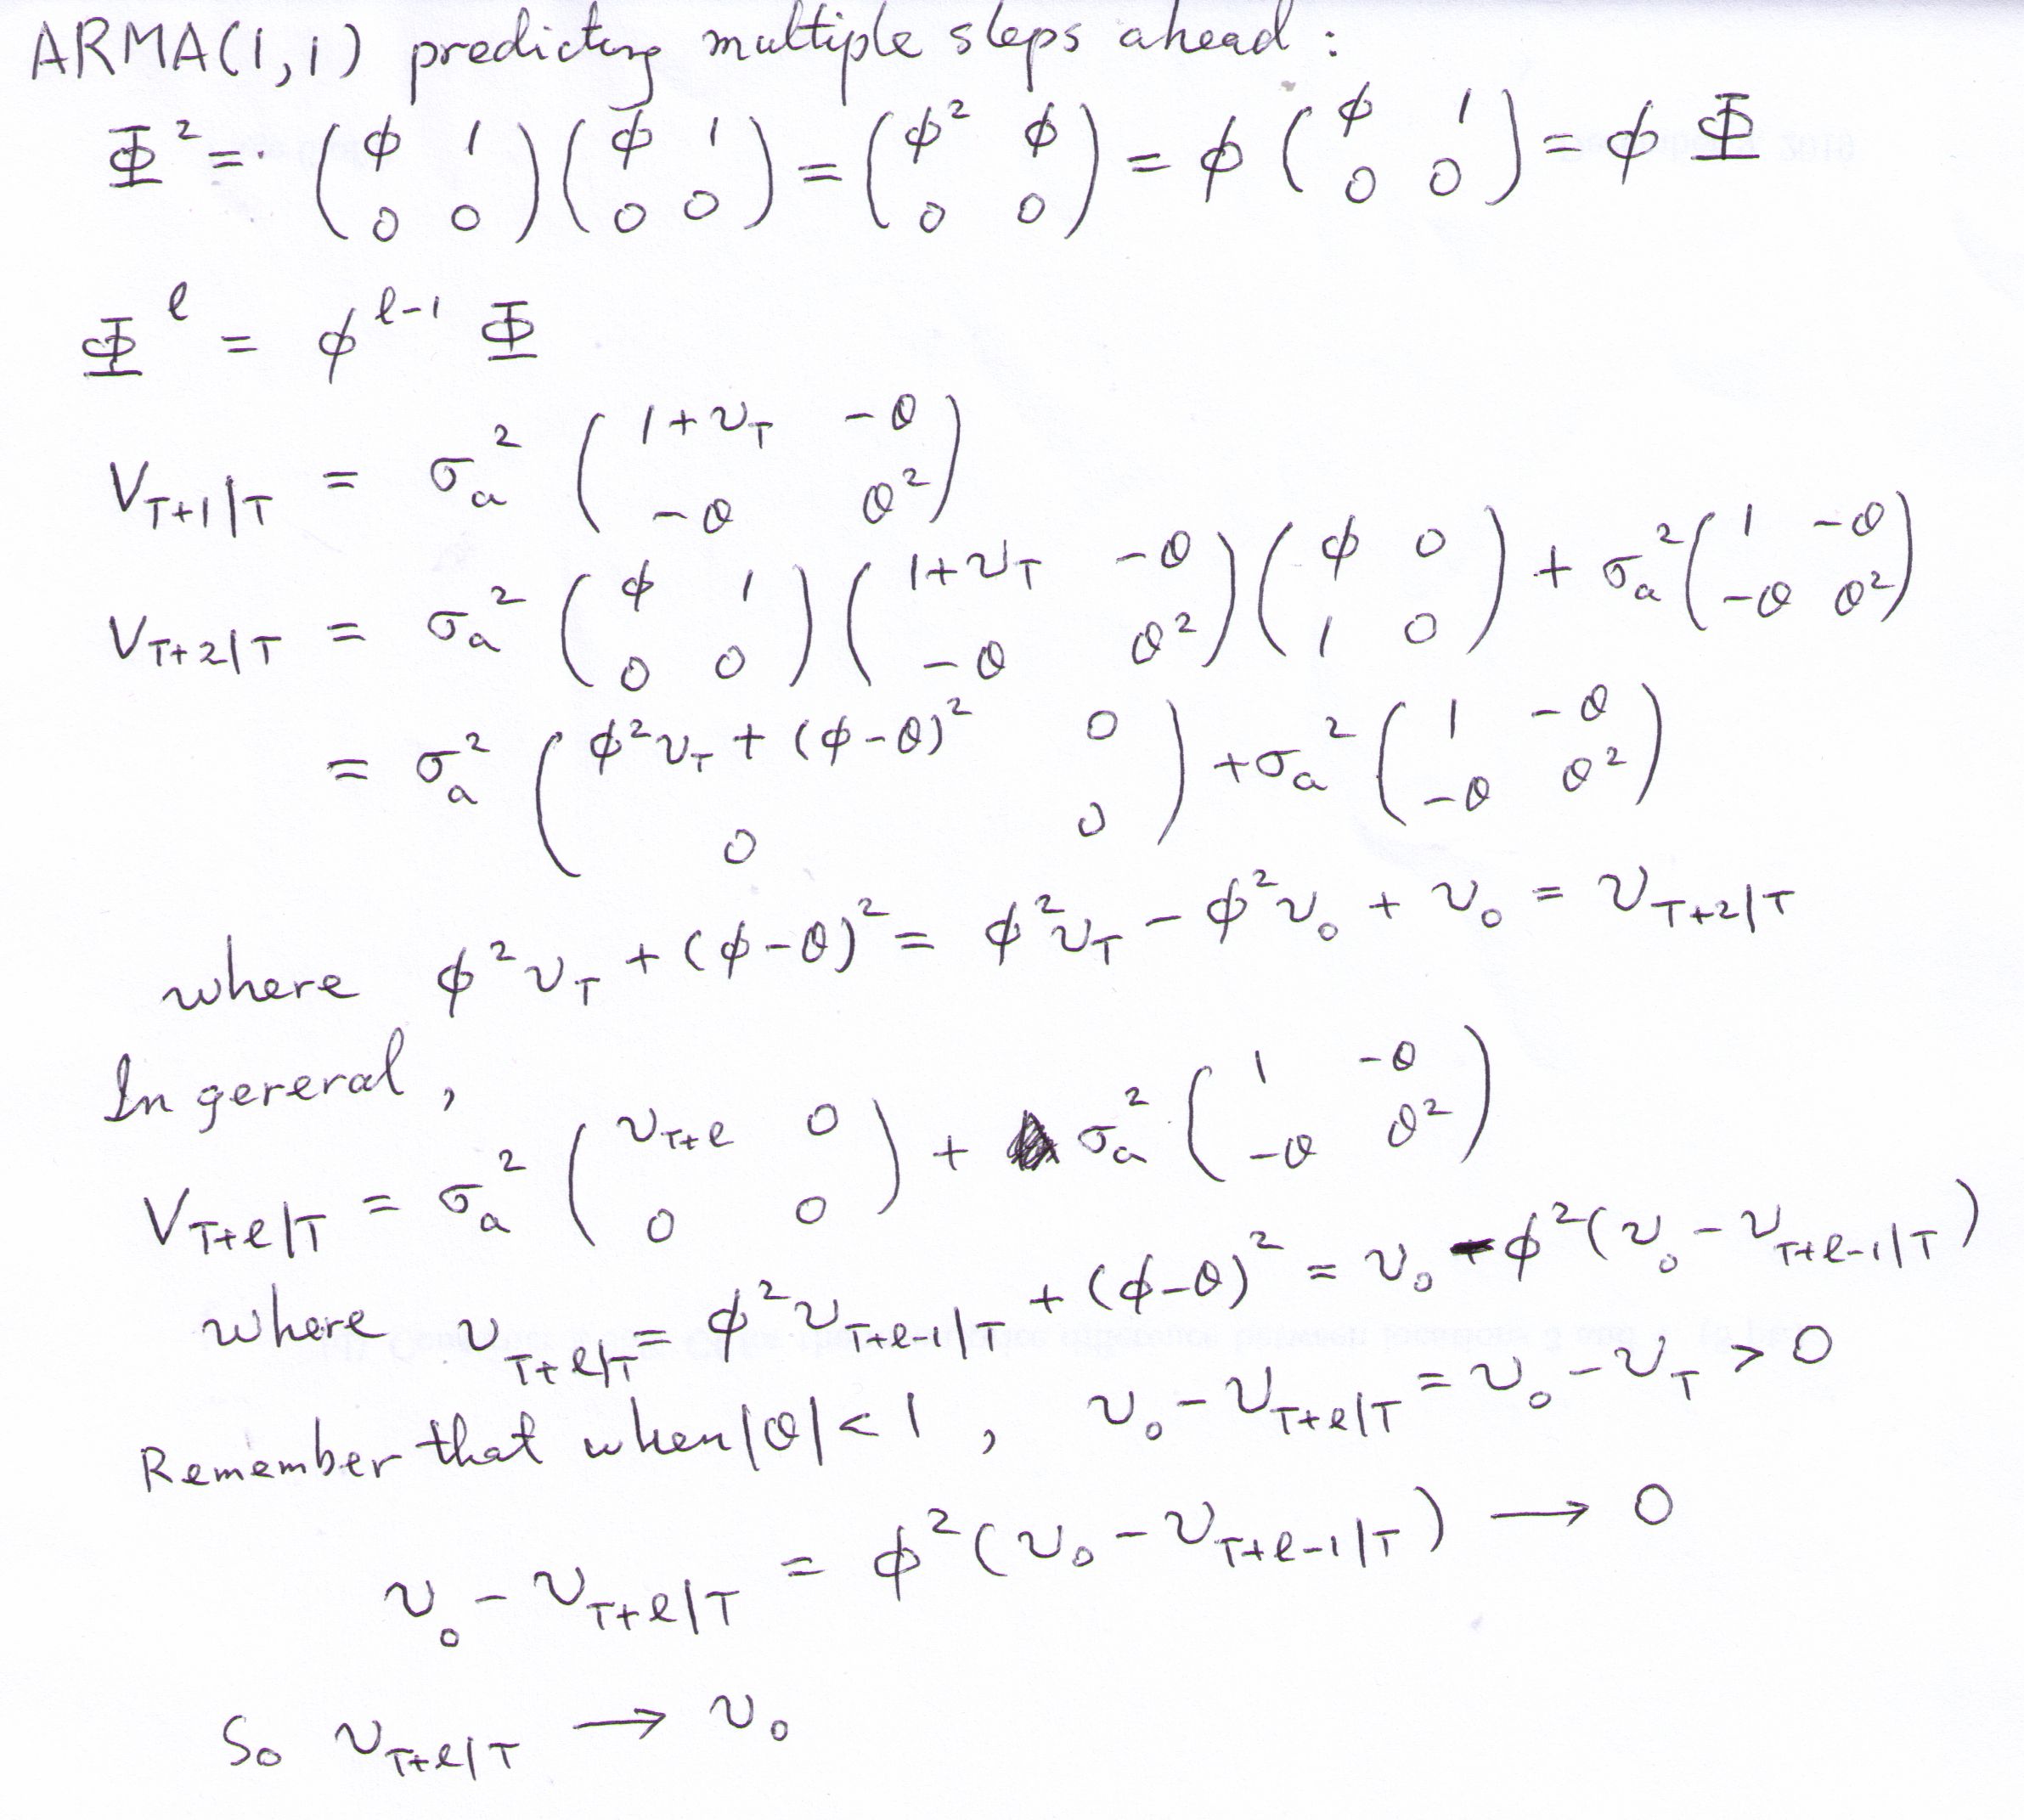 ARMA(1,1) predicting multiple steps ahead :
Φ² = (φ 1; 0 0)(φ 1; 0 0) = (φ² φ; 0 0) = φ (φ 1; 0 0) = φ Φ
Φ^ℓ = φ^(ℓ-1) Φ
V_{T+1|T} = σ_a² (1+v_T -θ; -θ θ²)
V_{T+2|T} = σ_a² (φ 1; 0 0)(1+v_T -θ; -θ θ²)(φ 0; 1 0) + σ_a² (1 -θ; -θ θ²)
= σ_a² (φ²v_T + (φ-θ)² 0; 0 0) + σ_a² (1 -θ; -θ θ²)
where φ²v_T + (φ-θ)² = φ²v_T - φ²v_0 + v_0 = v_{T+2|T}
In gereral,
V_{T+ℓ|T} = σ_a² (v_{T+ℓ} 0; 0 0) + σ_a² (1 -θ; -θ θ²)
where v_{T+ℓ|T} = φ²v_{T+ℓ-1|T} + (φ-θ)² = v_0 - φ²(v_0 - v_{T+ℓ-1|T})
Remember that when |θ| < 1, v_0 - v_{T+ℓ|T} = v_0 - v_T > 0
v_0 - v_{T+ℓ|T} = φ²(v_0 - v_{T+ℓ-1|T}) → 0
So v_{T+ℓ|T} → v_0